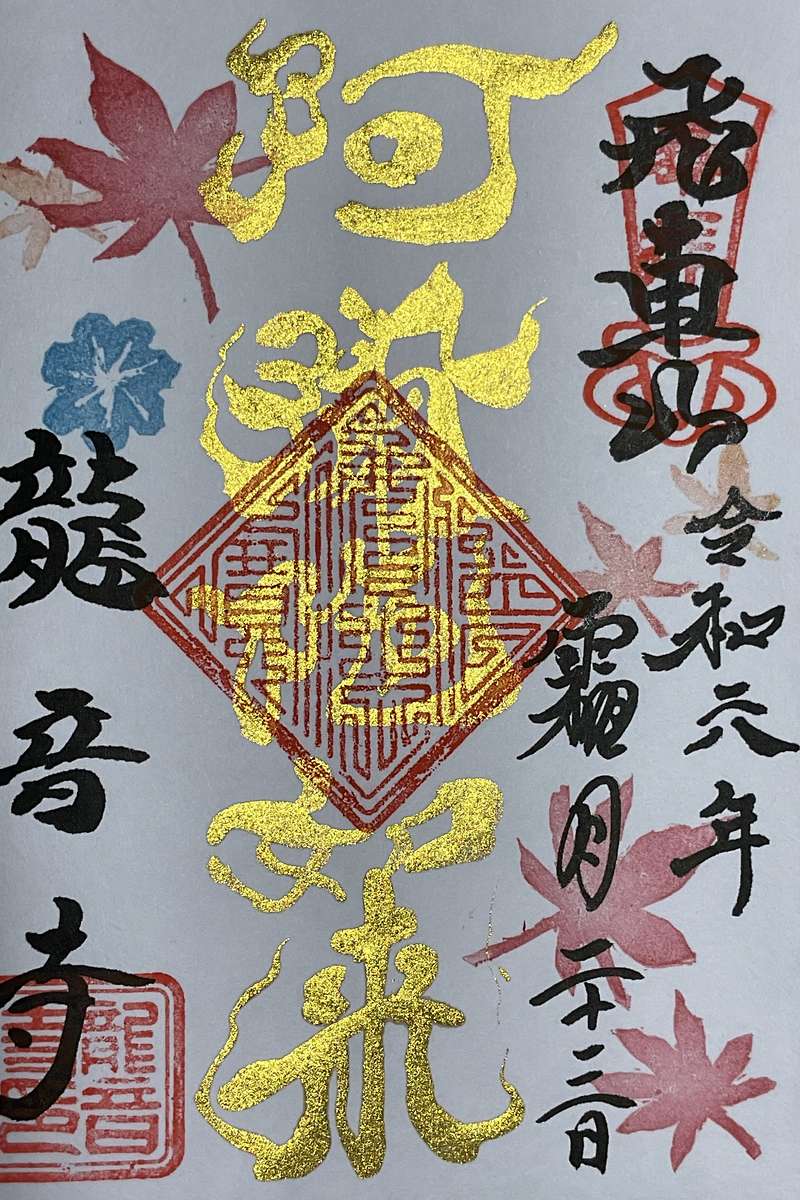 飛車山
令和六年
霜月二十三日
阿彌陀如来
龍音寺